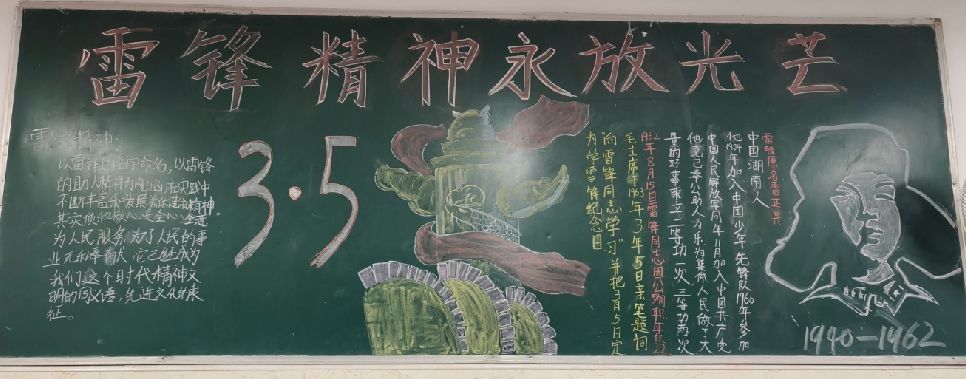 雷锋精神永放光芒
雷锋精神:
以雷锋的名字命名,以雷锋
的助人精神为内涵,在实践中
不断丰富和发展着的革命精神
其实质和核心是全心全意
为人民服务,为了人民的事
业无私奉献,它已经成为
我们这个时代精神文
明的同义语,先进文化的表
征。
3·5
雷锋原名雷正兴
中国湖南人
他1954年加入中国少年先锋队1960年参加
中国人民解放军同年11月加入中国共产党
他克己奉公助人为乐为集体人民做了大
量的好事荣立二等功一次三等功两次
1962年8月15日雷锋同志因公殉职年仅22
毛主席于1963年3月5日亲笔题词
"向雷锋同志学习"并把3月5日定
为学雷锋纪念日
1940—1962